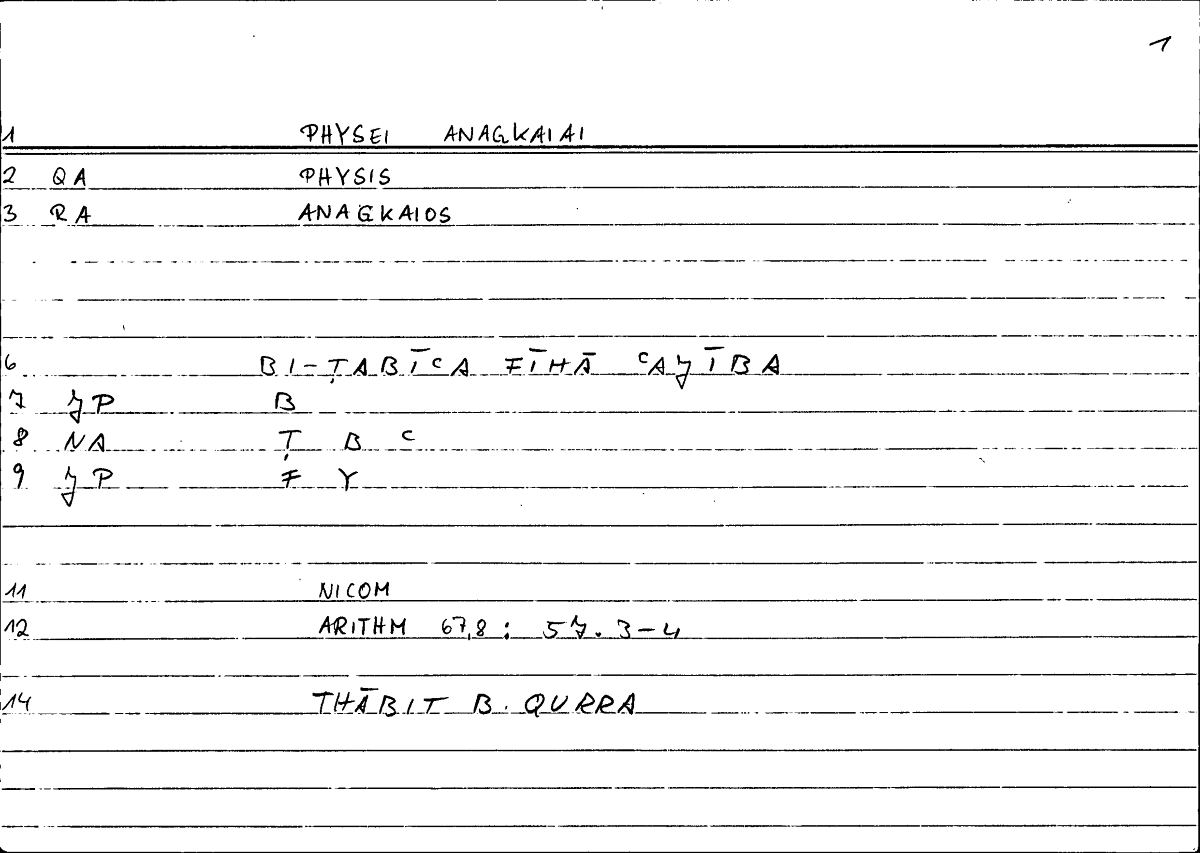 1
1 PHYSEI ANAGKAIAI
2 QA PHYSIS
3 RA ANAGKAIOS
6 BI-ṬABĪᶜA FĪHĀ ᶜAJĪBA
7 JP B
8 NA Ṭ B ᶜ
9 JP F Y
11 NICOM
12 ARITHM 67,8 : 57.3-4
14 THĀBIT B. QURRA